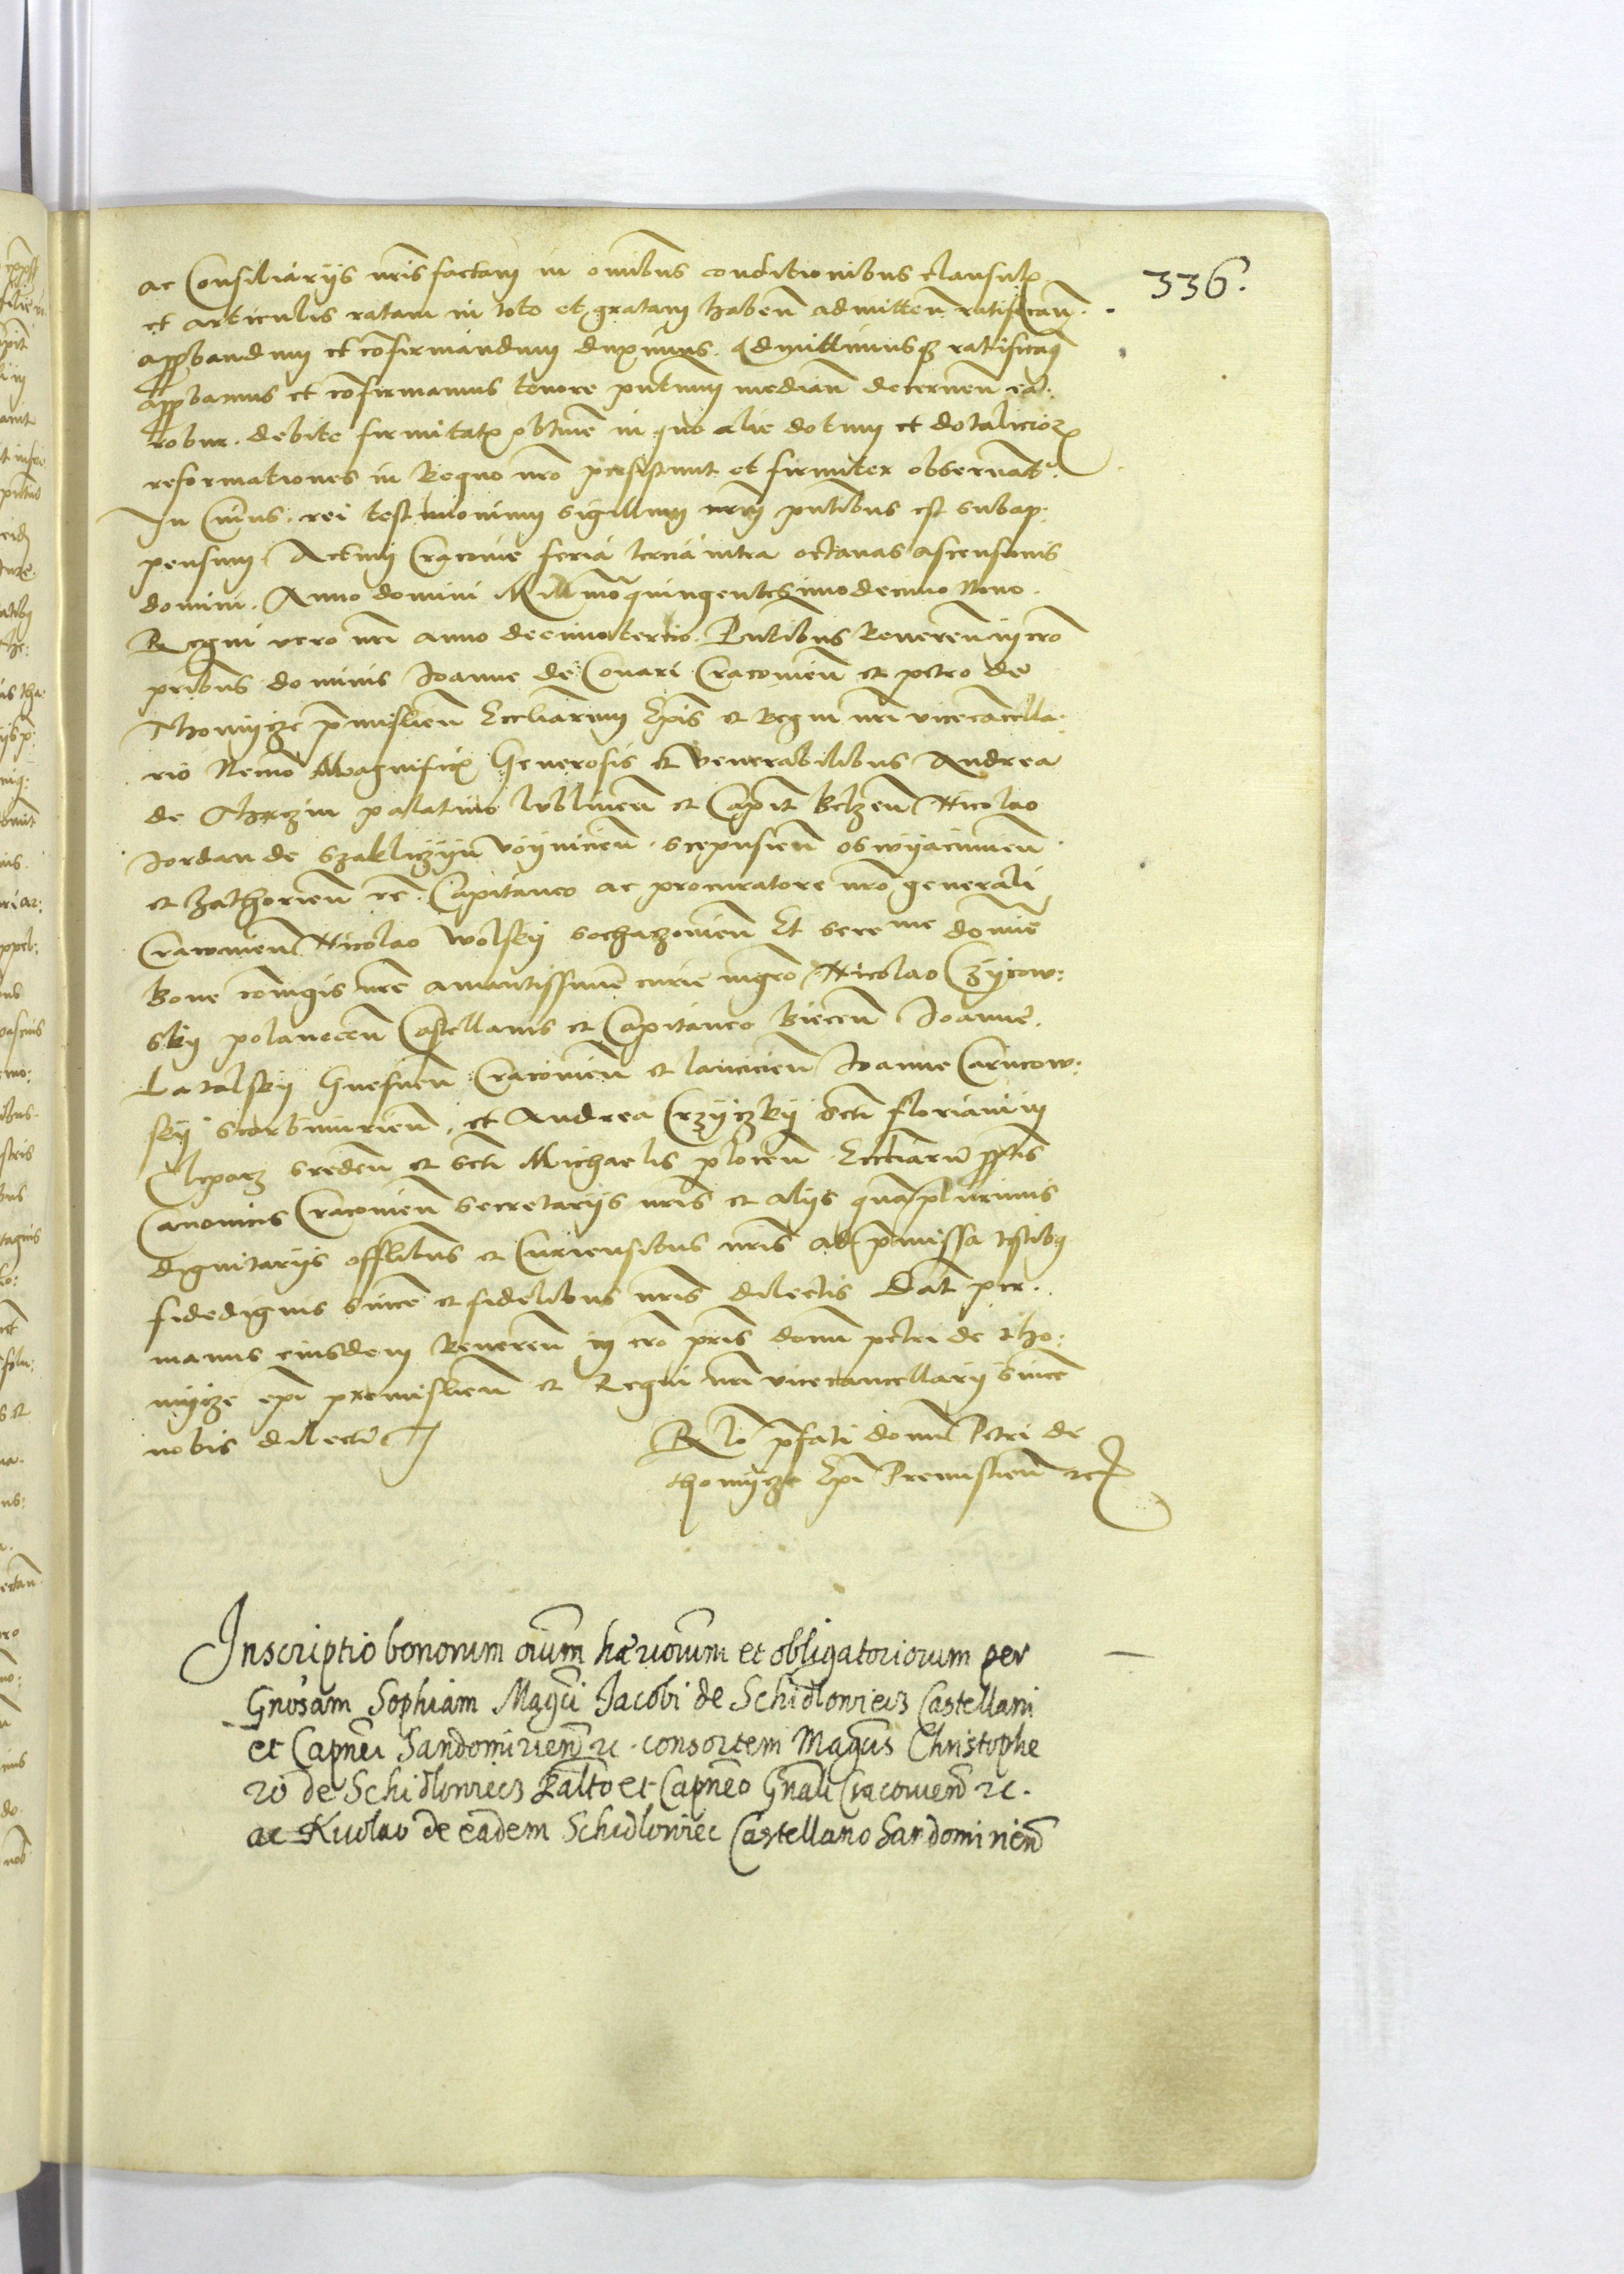 336.
ac Consiliariis nris factam in omibus conditionibus clausulis
et articulis ratam in toto et gratam haben admitten ratifican
approbandum et cofirmandum duximus. Admittimusq ratificam
approbamus et cofirmamus tenore pntium median decernen ea:
robur debite firmitatis obtine in quo alie dotum et dotalicior
reformationes in Regno nro persistunt et firmiter observant.
In Cuius rei testimonium sigillum nrm pntibus est subap:
pensum Actum Cracovie feria tercia intra octavas ascensionis
domini. Anno domini Millmo quingentesimo decimo Nono.
Regni vero nri anno decimotercio. Pntibus Reveren in cro
pribus dominis Joanne de Conari Cracovien et petro de
Thomycze premislien Eccliarum Epis et Regni nri vicecancella:
rio Necno Magnificis Generosis et venerabilibus Andrea
de Thaczin palatino lublinen et Capit Belzen Nicolao
Jordan de Szakliczyn voynicien scepusien oswyacimien
et zathorien rc. Capitaneo ac procuratore nro generali
Cracovien Nicolao wolsky sochaczovien Et sereme domine
Bone coniugis nre amantissime curie mgro Nicolao Czycow:
sky polanecen Castellanis et Capitaneo Biecen Joanne
Latalsky Gnesnen Cracovien et lancicien Joanne Carncow:
sky scarbimirien, et Andrea Crzyczky scti floriani in
Cleparz sreden et scti Michaelis plocen Eccliaru pptis
Canonicis Cracovien secretariis nris et aliis quamplurimis
dignitariis offlibus et Curiensibus nris ad pmissa testibus
fidedignis since et fidelibus nris dilectis Dat per
manus eiusdem Reveren in cro pris domi petri de Tho:
mycze epi premislien et Regni nri vicecancellarii since
nobis dilecti
Rlo pfati domi Petri de
thomycze Epi Premislien rc
Inscriptio bonorum oium haeriorum et obligatoriorum per
Gnosam Sophiam Magci Jacobi de Schidlowiecz Castellani
et Capnei Sandomirien rc. consortem Magcis Christophe
ro de Schidlowiecz Palto et Capneo Gnali Cracovien rc.
ac Nicolao de eadem Schidlowiec Castellano Sandomirien